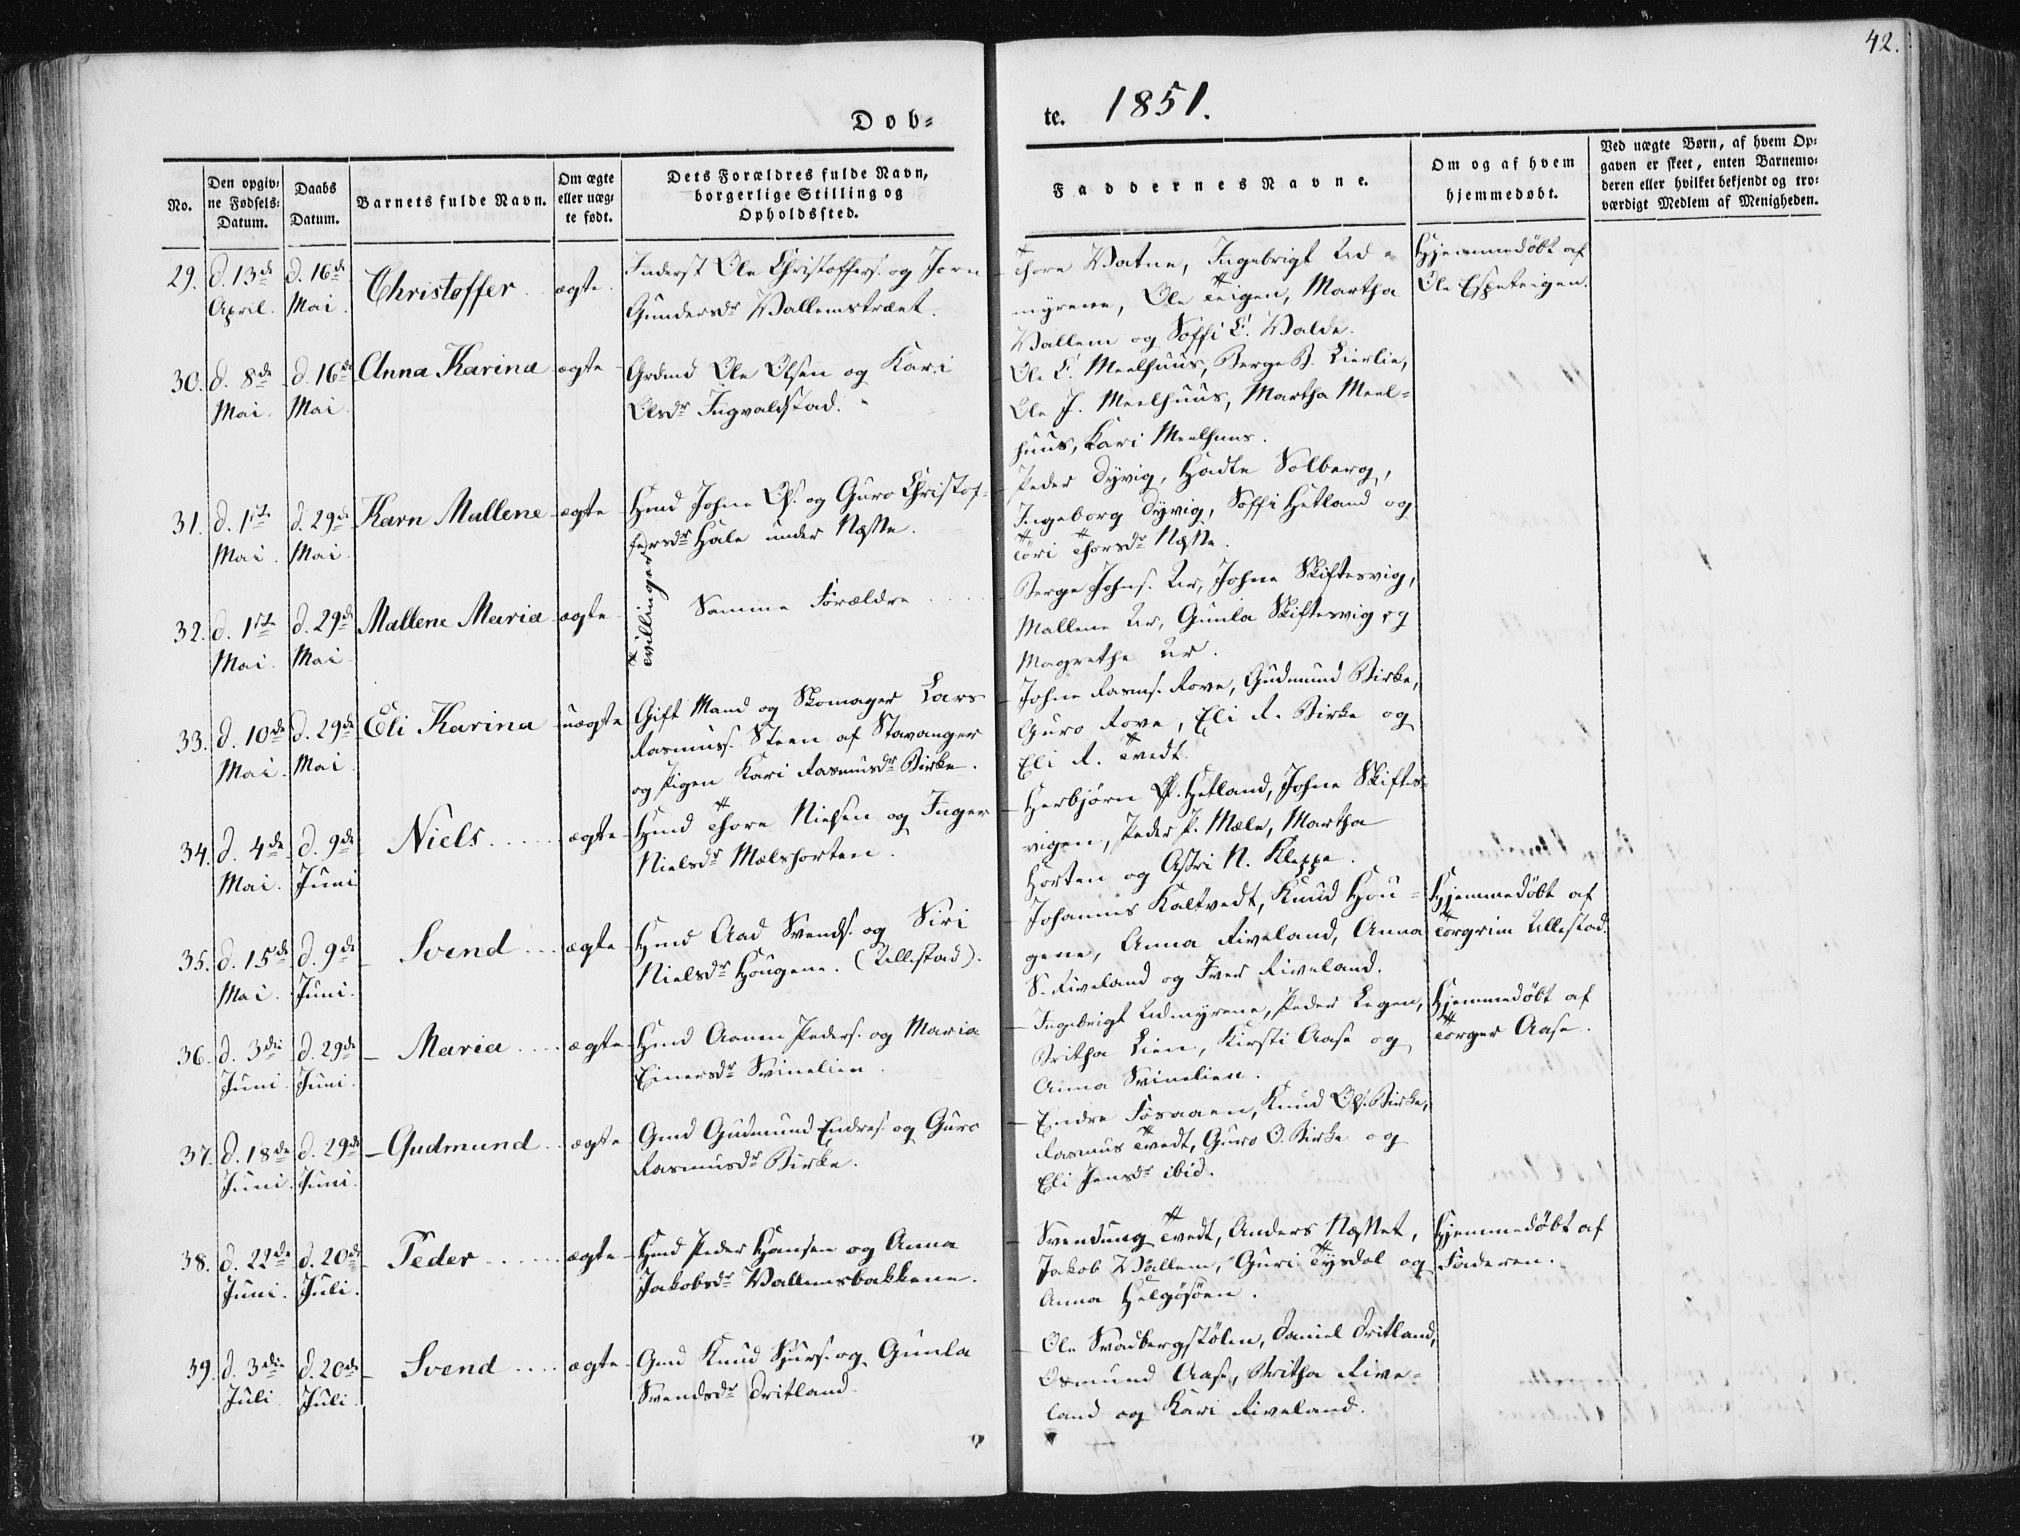 42.
Døb=
te. 1851.
No.
Den opgiv=
ne Fødsels=
Datum.
Daabs
Datum.
Barnets fulde Navn.
Om ægte
eller uæg=
te født.
Dets Forældres fulde Navn,
borgerlige Stilling og
Opholdssted.
Faddernes Navne.
Om og af hvem
hjemmedøbt.
Ved uægte Børn, af hvem Op=
gaven er skeet, enten Barnemo=
deren eller hvilket bekjendt og tro=
værdigt Medlem af Menigheden.
29. d. 13de April. d. 16de Mai. Christoffer ægte
Inderst Ole Christoffers. og Jorn
Gundersdr Vallemstræet.
Thore Vatne, Ingebrigt Ud=
myrene, Ole Teigen, Martha
Vallem og Soffi E. Valde.
Hjemmedøbt af
Ole Espeteigen.
30. d. 8de Mai. d. 16de Mai. Anna Karina ægte
Grdmd Ole Olsen og Kari
Olsdr Ingvaldstad.
Ole E. Meelhuus, Berge B. Lierlie,
Ole J. Meelhuus, Martha Meel=
huus, Kari Meelhuus.
31. d. 1ste Mai. d. 29de Mai. Karn Mallene ægte
Hmd Johne Ols. og Guro Christof=
fersdr Hale under Næsse.
Peder Dyvig, Hadle Solberg,
Ingeborg Dyvig, Soffi Hetland og
Töri Thorsdr Næsse.
Tvillinger
32. d. 1ste Mai. d. 29de Mai. Mallene Maria ægte
Samme Forældre
Berge Johns. Ur, Johne Skiftesvig,
Mallene Ur, Gunla Skiftesvig og
Magrethe Ur.
33. d. 10de Mai. d. 29de Mai. Eli Karina uægte
Gift Mand og Skomager Lars
Rasmus. Steen af Stavanger
og Pigen Kari Rasmusdr Birke.
Johne Rasms. Rove, Gudmund Birke,
Guro Rove, Eli R. Birke og
Eli R. Tvedt.
34. d. 4de Mai. d. 9de Juni Niels ægte
Hmd Thore Nielsen og Inger
Nielsdr Mælshorten.
Herbjørn P. Hetland, Johne Skiftes=
vigen, Peder P. Mæle, Martha
Horten og Astri N. Kleppe.
35. d. 15de Mai. d. 9de Juni. Svend ægte
Hmd Aad Svends. og Siri
Nielsdr Hougene. (Ullestad).
Johannes Kaltvedt, Knud Hou=
gene, Anna Riveland, Anna
S. Riveland og Iver Riveland.
Hjemmedøbt af
Torgrim Ullestad.
36. d. 3die Juni. d. 29de Juni. Maria ægte
Hmd Aanen Peders. og Maria
Einersdr Svinelien.
Ingebrigt Udmyrene, Peder Legen,
Britha Lien, Kirsti Aase og
Anna Svinelien.
Hjemmedøbt af
Torger Aase.
37. d. 18de Juni. d. 29de Juni. Gudmund ægte
Gmd Gudmund Endres. og Guro
Rasmusdr Birke.
Endre Fosaaen, Knud Ols. Birke,
Rasmus Tvedt, Guro O. Birke og
Eli Jensdr ibid.
38. d. 22de Juni. d. 20de Juli. Peder ægte
Hmd Peder Hansen og Anna
Jakobsdr Vallemsbakkene.
Svendung Tvedt, Anders Næsset,
Jakob Vallem, Guri Tysdal og
Anna Helgøsøen.
Hjemmedøbt af
Faderen.
39. d. 3die Juli. d. 20de Juli. Svend ægte
Gmd Knud Sjurs. og Gunla
Svendsdr Dritland.
Ole Svadbergstølen, Daniel Dritland,
Osmund Aase, Britha Rive=
land og Kari Riveland.